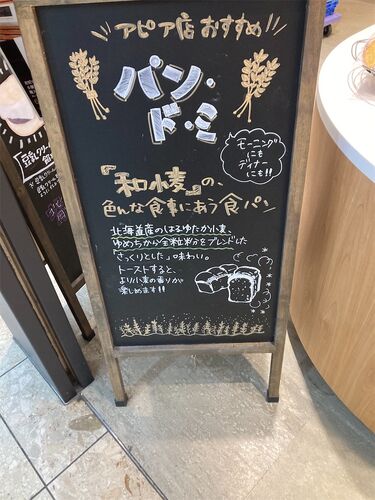 アピア店おすすめ!!
パン・
ド・ミ
モーニング
にも
ディナー
にも!!
『和小麦』の、
色んな食事にあう食パン
北海道産のはるゆたか小麦、
ゆめちから全粒粉分をブレンドした
「さっくりとした」味わい。
トーストすると、
より小麦の香りが
楽しめます!!